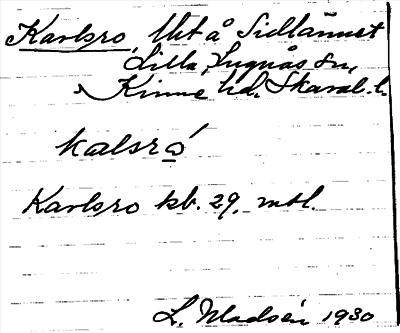 Karlsro, lht å Sidlännet
Lilla, Lugnås sn,
Kinne hd. Skarab. l.
kalsró
Karlsro kb. 29. mtl.
L. Madsén 1930